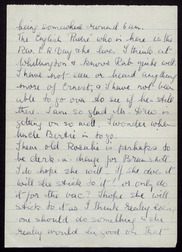 being somewhere round 6 am.
The English Padre who is here is the
Rev. E. R. Day who lives I think at
Whittington & knows Rub quite well.
I have not seen or heard anything
more of Ernest, & I have not been
able to go over to see if he's still
there. I am so glad Mr. is
getting on so well, I wonder when
uncle Bertie is to go.
Then old Rosalie is perhaps to
be clerk in charge for
I do hope she will. If she does it
will she stick to it? or only do
it for the vac? I hope she will
stick to it as I think really
one should do something & she
really would be good in that